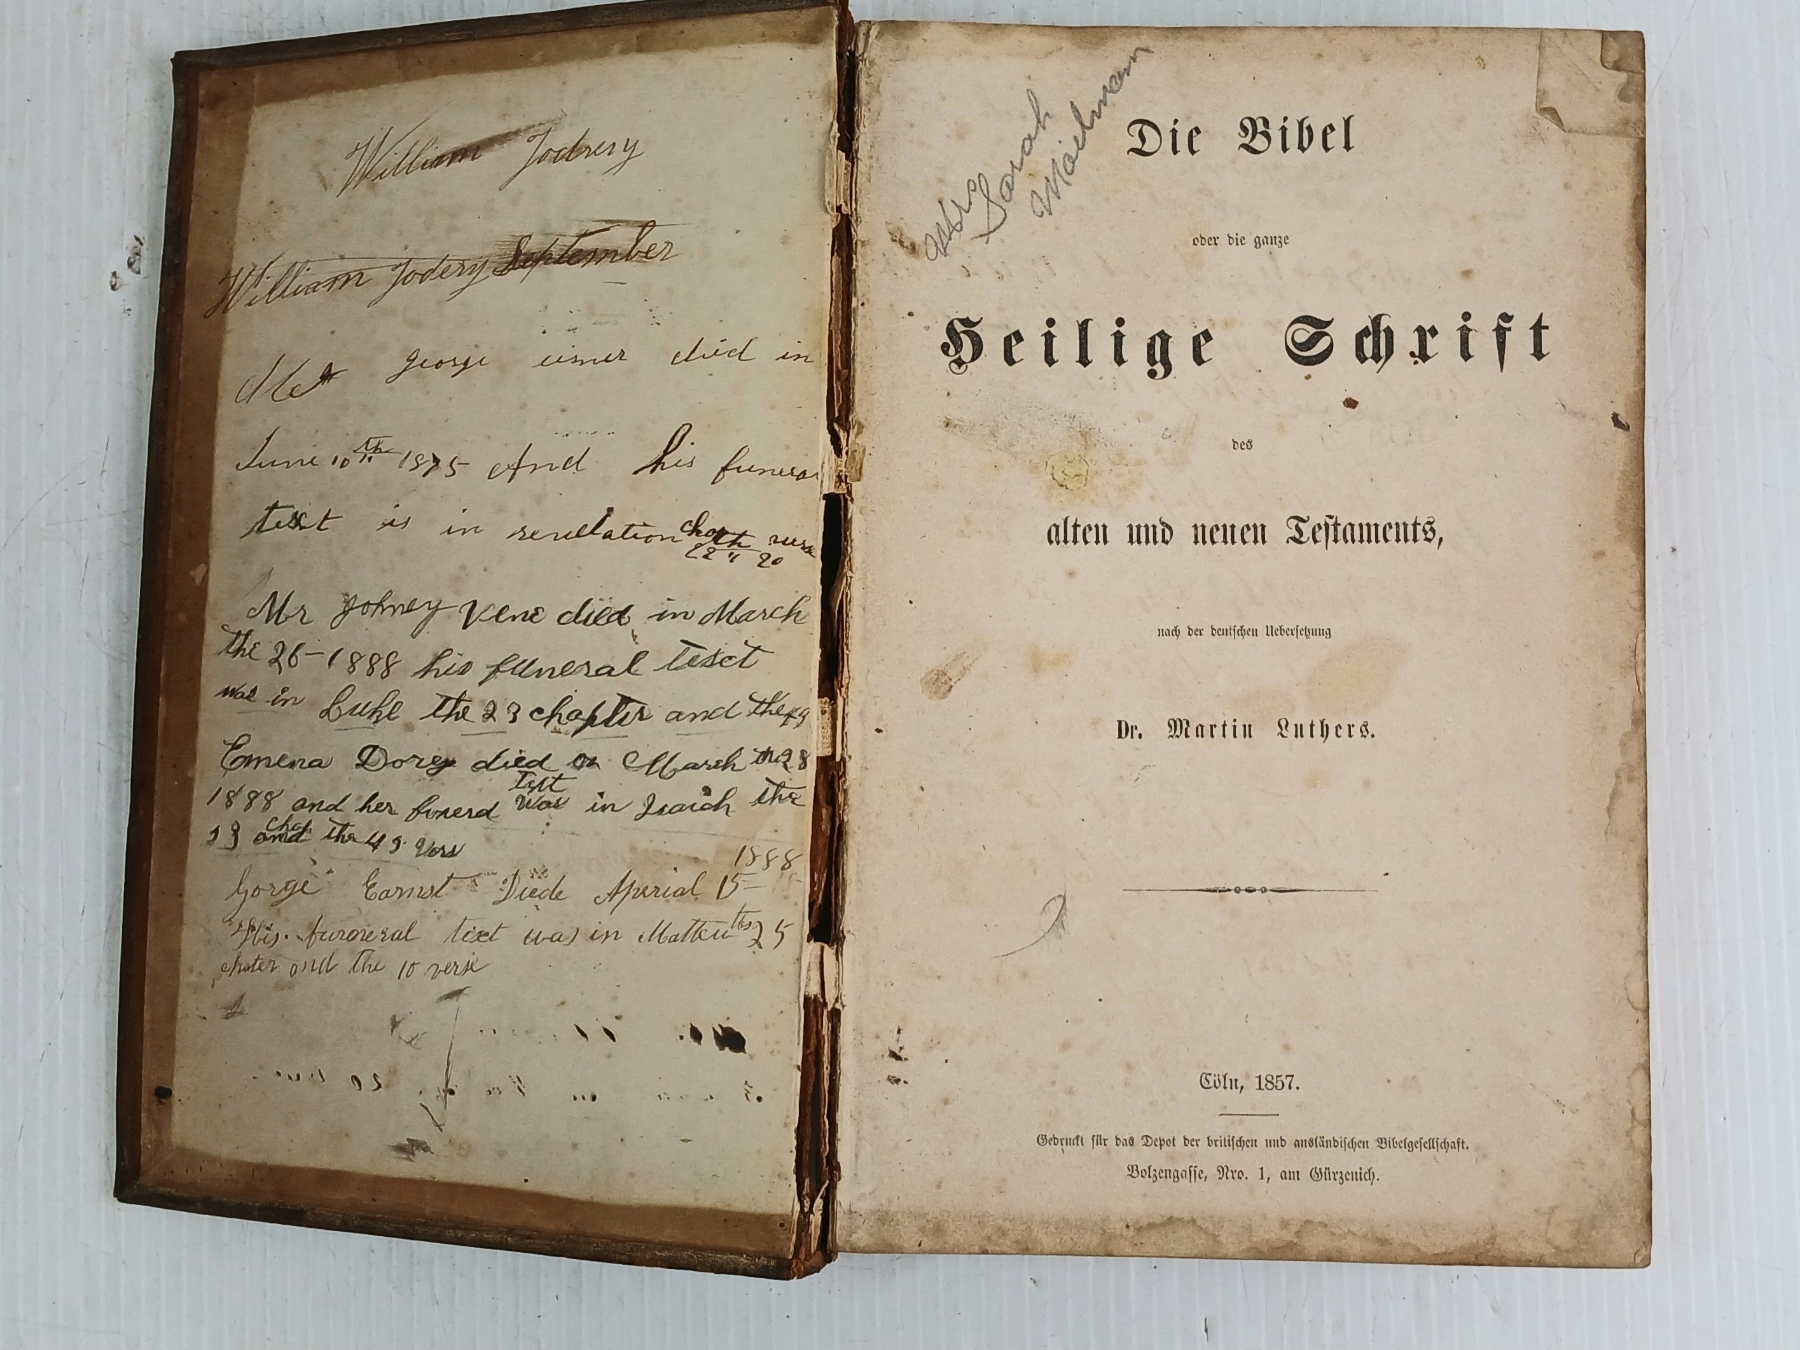 William Jodrery
William Jodery September
George eisner died in
June 10th 1875 And his funeral
text is in revelation chapt verse
22 " 20
Mr Johney Vene died in March
the 26 - 1888 his funeral texct
was in Luke the 23 chapter and the
Emena Dorey died on March the 28
1888 and her funerd text was in Isaiah the
and the 49 Vers
1888
Gorge Earnst Diede Aperial 15
His furoneral text was in Mattew the 25
chater and the 10 verse
Mrs
Sarah
Maelmann
Die Bibel
oder die ganze
Heilige Schrift
des
alten und neuen Testaments,
nach der deutschen Uebersetzung
Dr. Martin Luthers.
Cöln, 1857.
Gedruckt für das Depot der britischen und ausländischen Bibelgesellschaft.
Bolzengasse, Nro. 1, am Gürzenich.